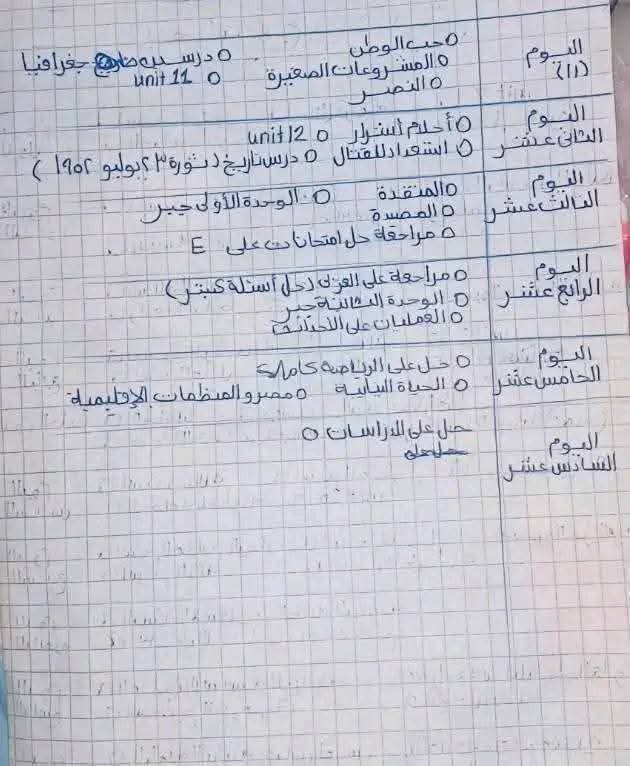 اليوم (١١)
○ حب الوطن ○ درسين جغرافيا
○ المشروعات الصغيرة ○ unit 11
○ النصر
اليوم الثاني عشر
○ أحلام أشرار ○ unit 12
○ استعداد للقتال ○ درس تاريخ (ثورة ٢٣ يوليو ١٩٥٢)
اليوم الثالث عشر
○ المنقذة ○ الوحدة الأولى جبر
○ المصيدة
○ مراجعة حل امتحانات على E
اليوم الرابع عشر
○ مراجعة على العربي (حل أسئلة كتير)
○ الوحدة الثانية جبر
○ العمليات على الأحداث
اليوم الخامس عشر
○ حل على الرياضة كاملة
○ الحياة النيابية ○ مصر والمنظمات الإقليمية
اليوم السادس عشر
حل على الدراسات ○